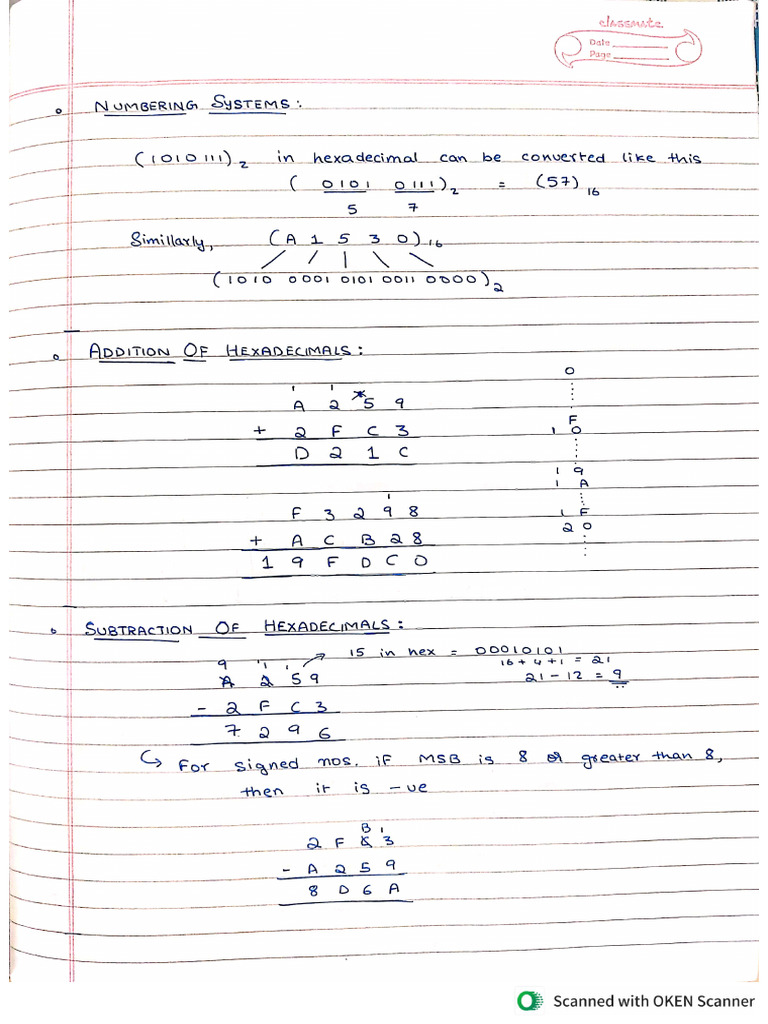 classmate
Date
Page
NUMBERING SYSTEMS:
(1010111)2 in hexadecimal can be converted like this
(0101 0111)2 = (57)16
5 7
Simillarly, (A 1 5 3 0)16
(1010 0001 0101 0011 0000)2
ADDITION OF HEXADECIMALS:
1 1
A 2 5 9
+ 2 F C 3
D 2 1 C
0
F
1 0
1 9
1 A
1 F
2 0
1
F 3 2 9 8
+ A C B 2 8
1 9 F D C 0
SUBTRACTION OF HEXADECIMALS:
15 in hex = 00010101
16 + 4 + 1 = 21
21 - 12 = 9
9 1 1
A 2 5 9
- 2 F C 3
7 2 9 6
For signed nos. if MSB is 8 or greater than 8,
then it is -ve
B 1
2 F C 3
- A 2 5 9
8 D 6 A
Scanned with OKEN Scanner